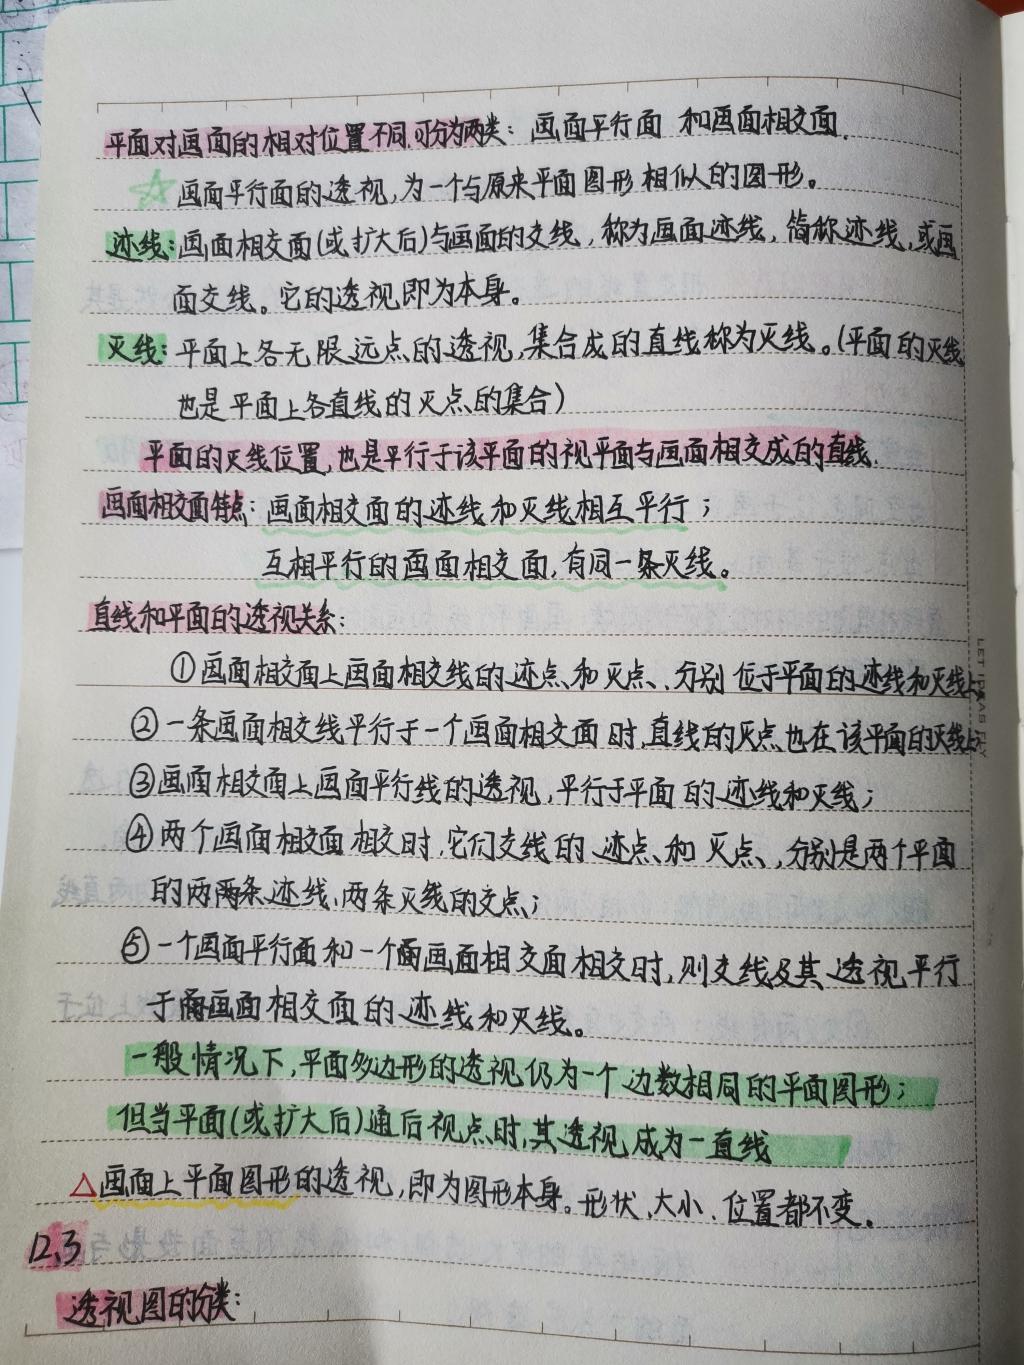 平面对画面的相对位置不同.可分为两类：画面平行面 和画面相交面.
☆画面平行面的透视,为一个与原来平面图形相似的图形。
迹线：画面相交面(或扩大后)与画面的交线，称为画面迹线，简称迹线,或画
面交线。它的透视即为本身。
灭线：平面上各无限远点的透视,集合成的直线称为灭线。(平面的灭线
也是平面上各直线的灭点的集合)
平面的灭线位置,也是平行于该平面的视平面与画面相交成的直线.
画面相交面特点：画面相交面的迹线和灭线相互平行；
互相平行的画面相交面,有同一条灭线。
直线和平面的透视关系：
①画面相交面上画面相交线的迹点、和灭点、分别位于平面的迹线和灭线上
②一条画面相交线平行于一个画面相交面时,直线的灭点也在该平面的灭线上
③画面相交面上画面平行线的透视,平行于平面的迹线和灭线；
④两个画面相交面相交时,它们交线的迹点、和灭点、,分别是两个平面
的两条迹线,两条灭线的交点；
⑤一个画面平行面和一个画面相交面相交时,则交线及其透视平行
于画面相交面的迹线和灭线。
一般情况下,平面多边形的透视仍为一个边数相同的平面图形；
但当平面(或扩大后)通后视点时,其透视成为一直线
△画面上平面图形的透视,即为图形本身。形状、大小、位置都不变。
12.3
透视图的分类：
LET IDEAS FLY